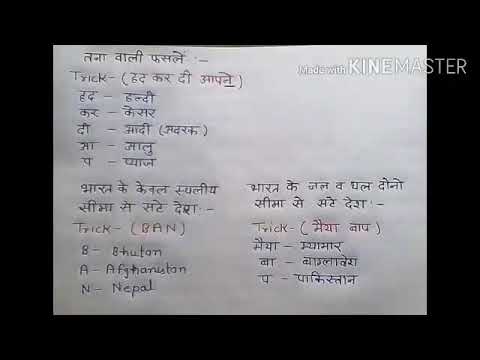 Made with KINEMASTER
तना वाली फसलें :-
Trick- (हद कर दी आपने)
हद - हल्दी
कर - केसर
दी - आदी (अदरक)
आ - आलु
प - प्याज
भारत के केवल स्थलीय
सीमा से सटे देश :-
Trick- (BAN)
B - Bhutan
A - Afghanistan
N - Nepal
भारत के जल व थल दोनो
सीमा से सटे देश :-
Trick - (मैया बाप)
मैया - म्यामार
बा - बाग्लादेश
प - पाकिस्तान